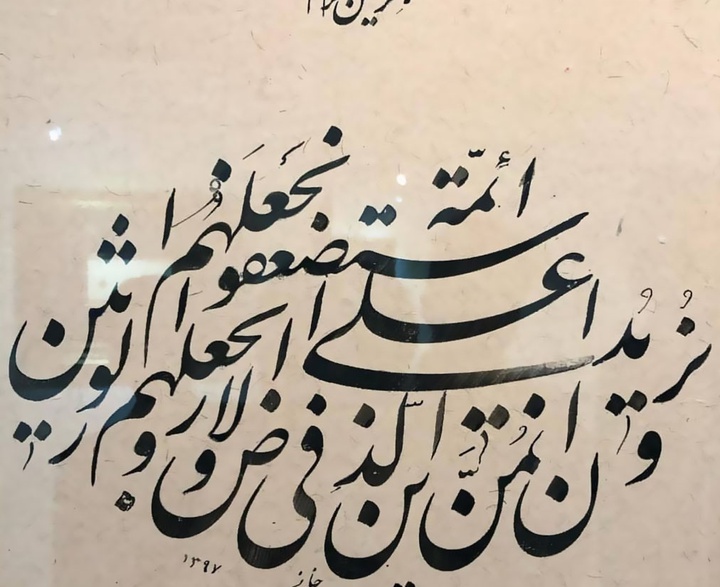 وَنُرِيدُ ان نَمُنَّ على الّذين استضعفوا فى الارض ونَجعَلَهُم أئمّة ونجعلهم الوارثين
١٣٩٧